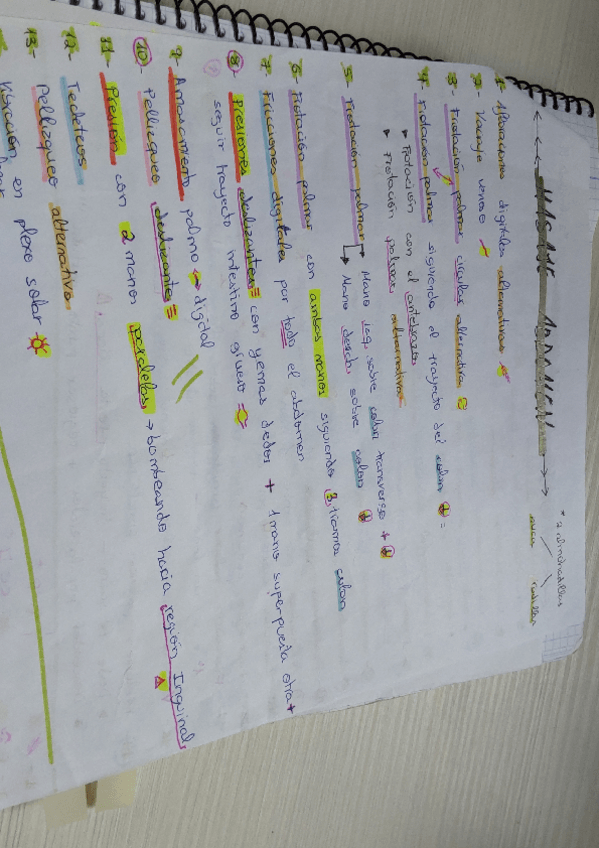 MASAJE ABDOMEN
* 2 almohadillas
nuca rodillas
1- Afloraciones digitales alternativas
2- Vaciaje venoso
3- Frotación palmar circular alternativa
4- Frotación palmar siguiendo el trayecto del colon
► Frotación con el antebrazo
► Frotación palmar alternativa
5- Frotación palmar → Mano izq. sobre colon transverso +
→ Mano derecha sobre colon
6- Frotación palmar con ambas manos siguiendo 3 tramos colon
7- Fricciones digitales por todo el abdomen
8- Presiones deslizantes = con yemas dedos + 1 mano superpuesta otra +
seguir trayecto intestino grueso
9- Amasamiento palmo digital
10- Pellizqueo deslizante =
11- Presión con 2 manos paralelas → bombeando hacia región Inguinal
12- Tecleteos
13- Pellizqueo alternativo
Vibración en plexo solar